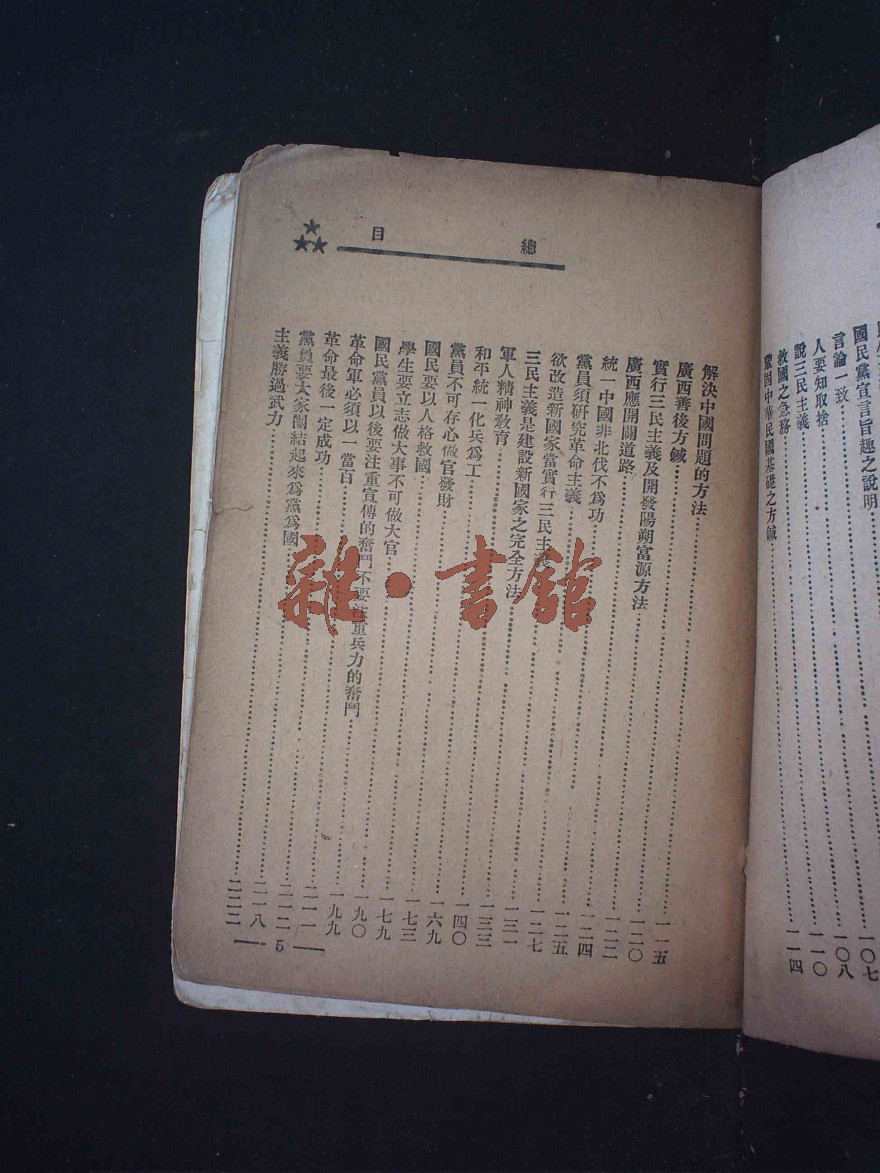 國民黨宣言旨趣之說明
言論一致
人要知取捨……一〇七
說三民主義……一〇八
救國之急務……一一〇
鞏固中華民國基礎之方鍼……一一四
總目
解決中國問題的方法……一一五
廣西善後方鍼……一二〇
實行三民主義及開發陽朔富源方法……一二二
廣西應開闢道路……一二四
統一中國非北伐不為功……一二五
黨員須研究革命主義……一二七
欲改造新國家當實行三民主義……一三一
三民主義是建設新國家之完全方法……一三三
軍人精神教育……一四〇
和平統一化兵為工……一六九
黨員不可存心做官發財……一七三
國民要以人格救國……一七九
學生要立志做大事不可做大官……一九〇
國民黨員以後要注重宣傳的奮鬥不要注重兵力的奮鬥……一九九
革命軍必須以一當百……二一一
革命最後一定成功……二一二
黨員要大家團結起來為黨為國……二一八
主義勝過武力……二二二
5
雜·書館